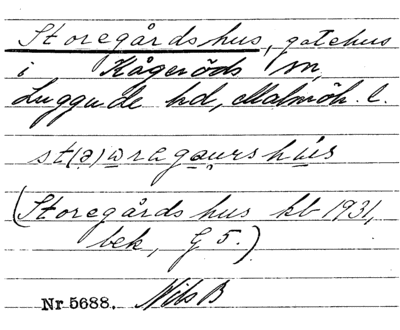 Storegårdshus, gatehus
i Kågeröds sn,
Luggude hd, Malmöh. l.
st(ə)wragaurshús
(Storegårdshus kb 1931,
bek, G 5.)
Nr 5688. Nils B